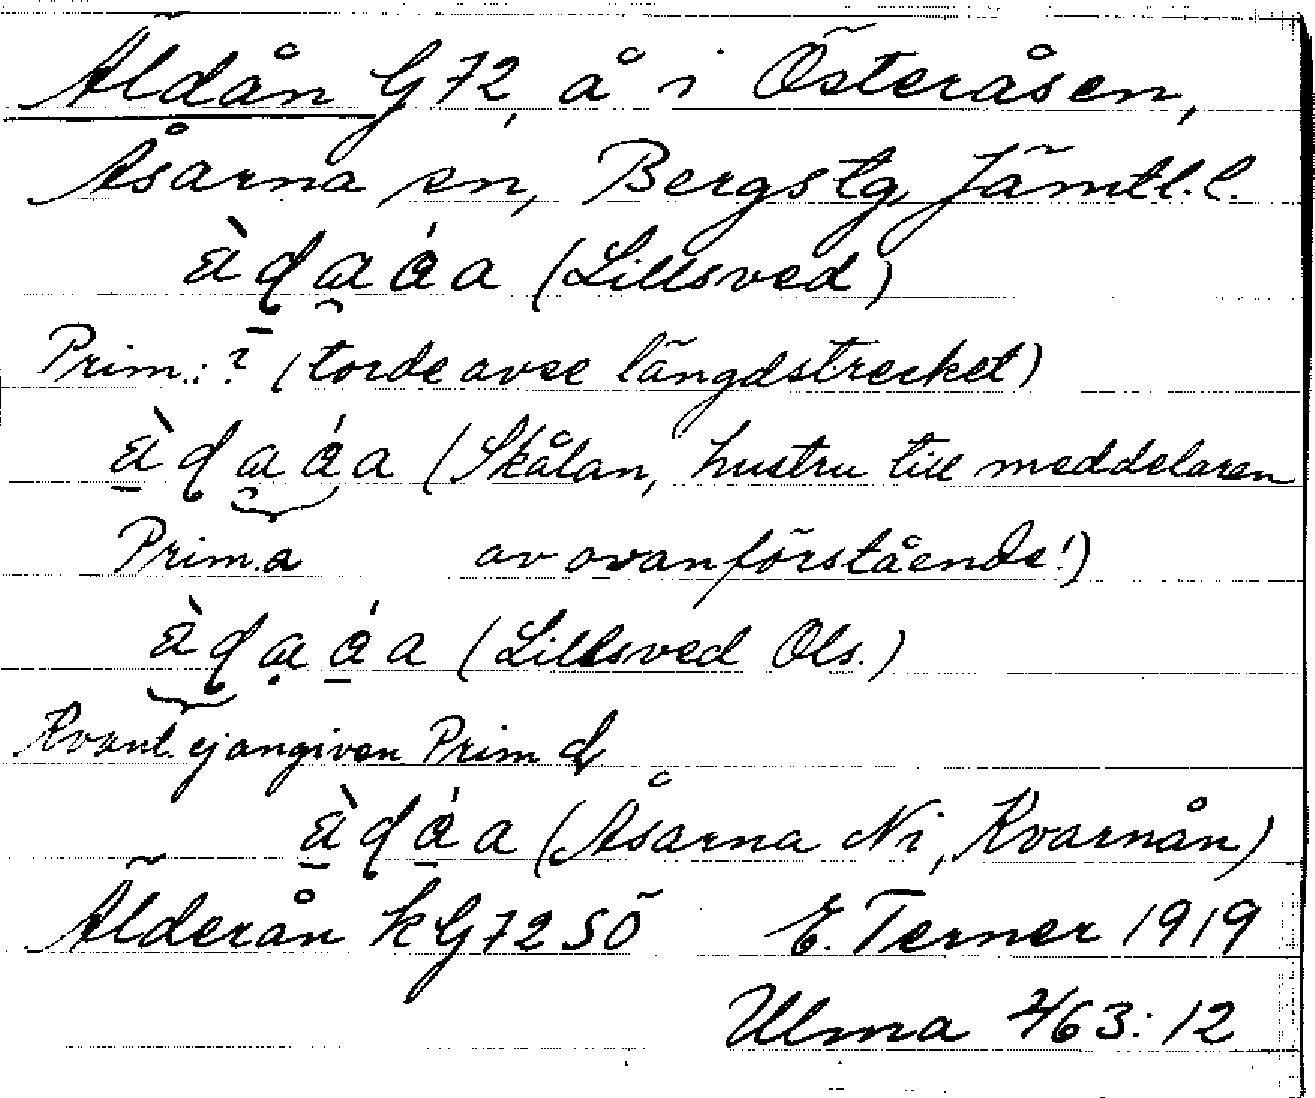 Äldån G72, å i Österåsen,
Åsarna sn, Bergs tg Jämtl. l.
(Lillsved)
Prim.: ? (torde avse längdstrecket)
(Skålan, hustru till meddelaren
Prim. a av ovanförstående!)
(Lillsved Ols.)
Kvant. ej angiven Prim
(Åsarna Ni, Kvarnån)
Älderån kG72SÖ E. Terner 1919
Ulma 763:12